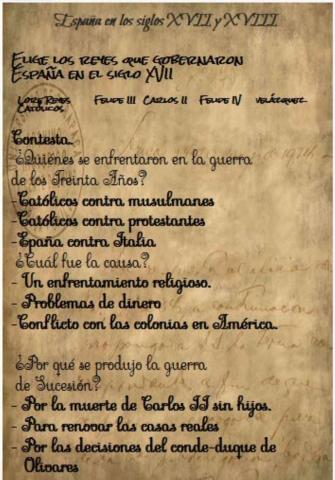 España en los siglos XVII y XVIII
ELIGE LOS REYES QUE GOBERNARON
ESPAÑA EN EL SIGLO XVII
LOS REYES CATÓLICOS FELIPE III CARLOS II FELIPE IV VELÁZQUEZ
Contesta.
¿Quiénes se enfrentaron en la guerra
de los Treinta Años?
-Católicos contra musulmanes
-Católicos contra protestantes
-Epaña contra Italia
¿Cuál fue la causa?
- Un enfrentamiento religioso.
- Problemas de dinero
-Conflicto con las colonias en América.
¿Por qué se produjo la guerra
de Sucesión?
- Por la muerte de Carlos II sin hijos.
- Para renovar las casas reales
- Por las decisiones del conde-duque de
Olivares